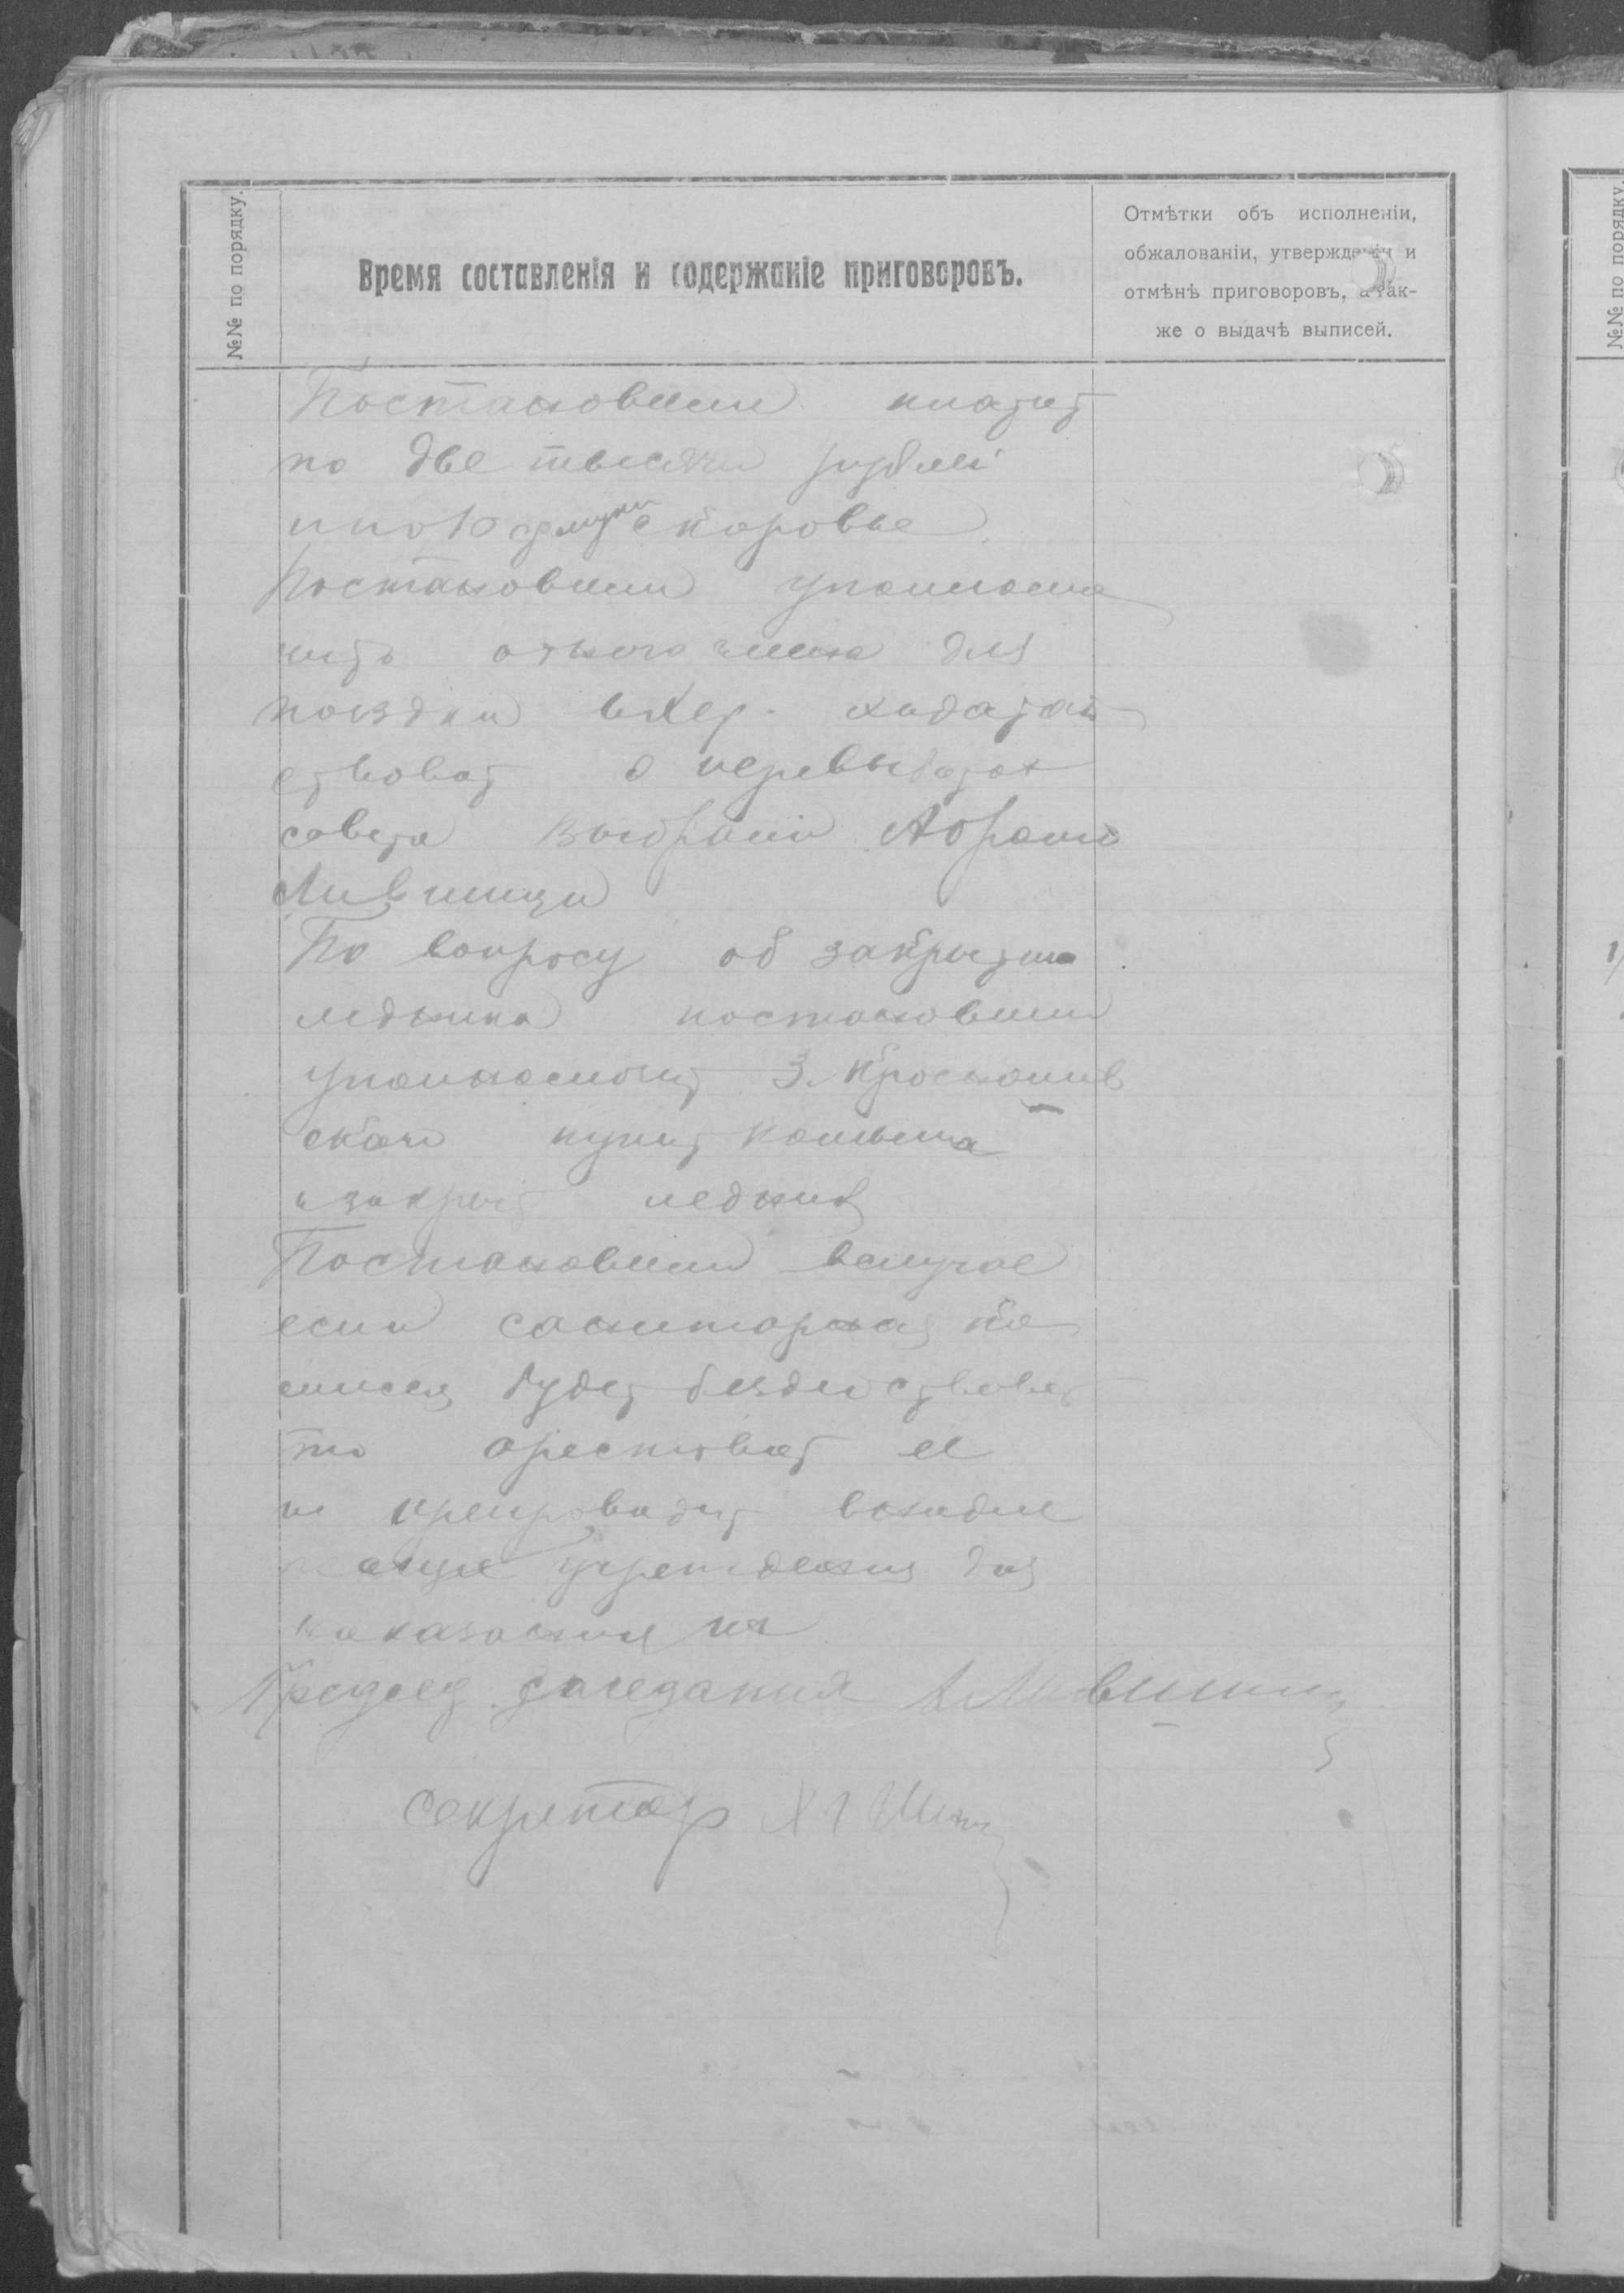 №№ по порядку.
Время составленія и содержаніе приговоровъ.
Отмѣтки объ исполненіи,
обжалованіи, утвержденіи и
отмѣнѣ приговоровъ, а так-
же о выдачѣ выписей.
Постановили платит
по две тысячи рублей
и по 10 ф муки с коровы
Постановили уполномо
чить одного члена для
поездки в Хер. ходатай
ствоват о перевыборах
совета выбрали Абрама
Лившица
По вопросу об закрытии
ледника постановили
уполномочит З.
купит камыша
и закрыт ледник
Постановили в случае
если санитарная ко
мисся будет бездействоват
то арестоват ее
и препроводит в надле
жащие учреждения для
наказания их
Председ заседания А Лившиц
Секретар
№№ по порядку.